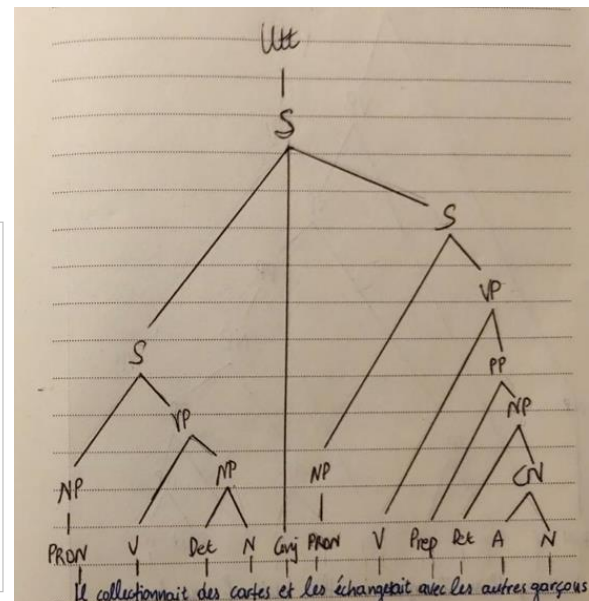 Utt
S
S
S
VP
PP
VP
NP
NP
NP
NP
CN
PRON V Det N Conj PRON V Prep Det A N
Il collectionnait des cartes et les échangeait avec les autres garçons